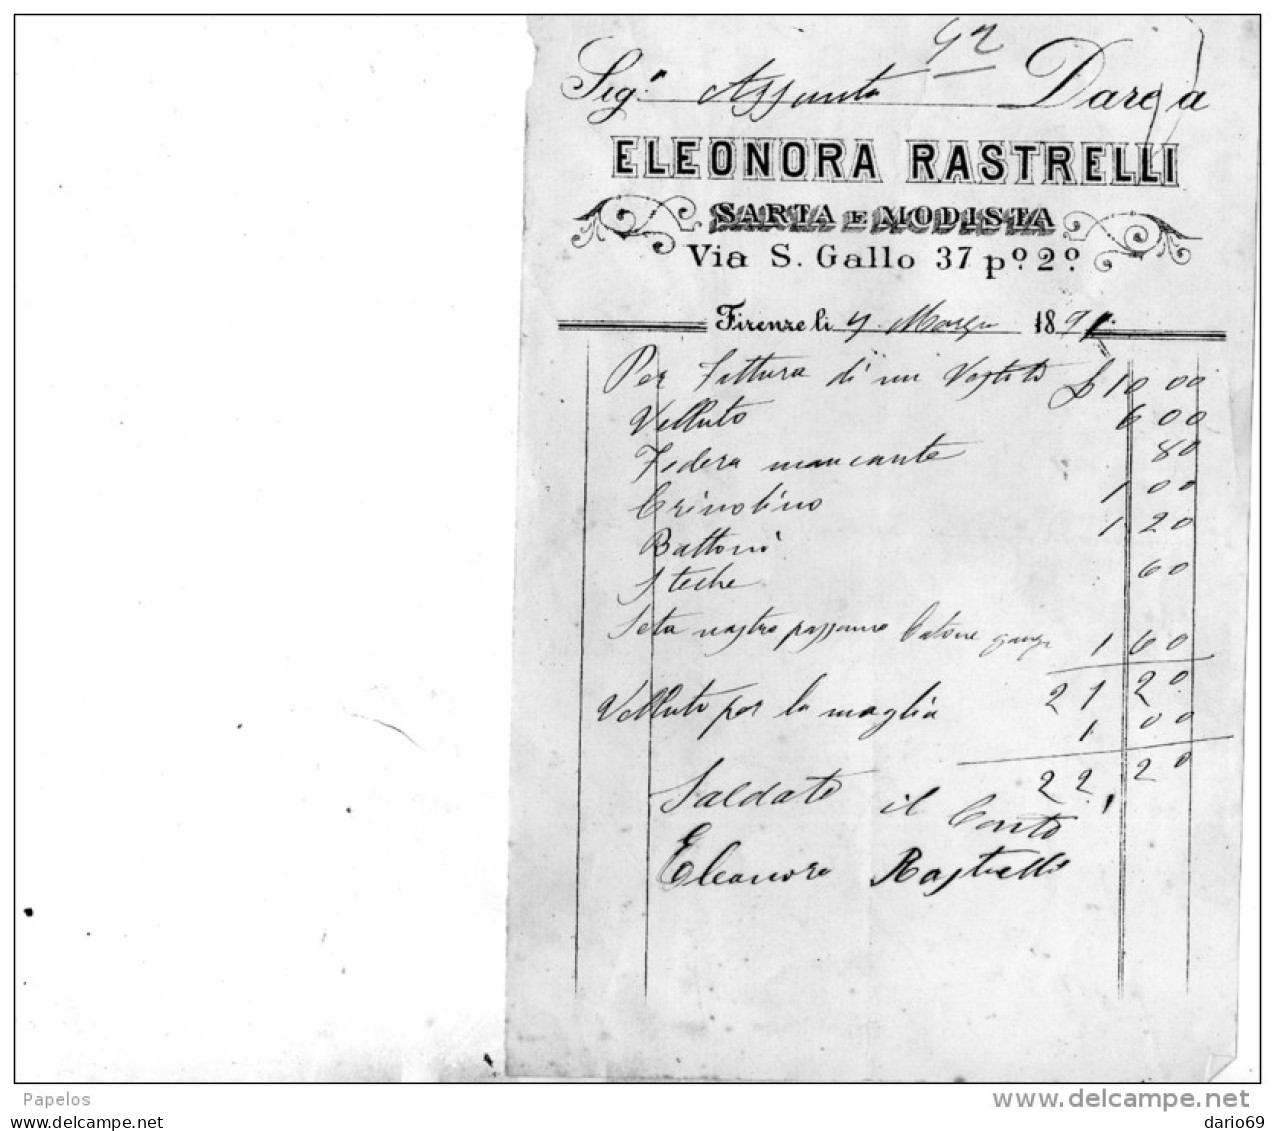 92
Sigª Assunta Dare a
ELEONORA RASTRELLI
SARTA E MODISTA
Via S. Gallo 37 pº 2º
Firenze li 9 Marzo 189
Per fattura di un Vestito £ 10 00
Velluto 6 00
Federa mancante 80
Crinolino 1 00
Bottoni 1 20
Steche 60
Seta nastro 1 60
21 20
Velluto per la maglia 1 00
22, 20
Saldato il Conto
Eleonora Rastrelli
Papelos
www.delcampe.net
dario69